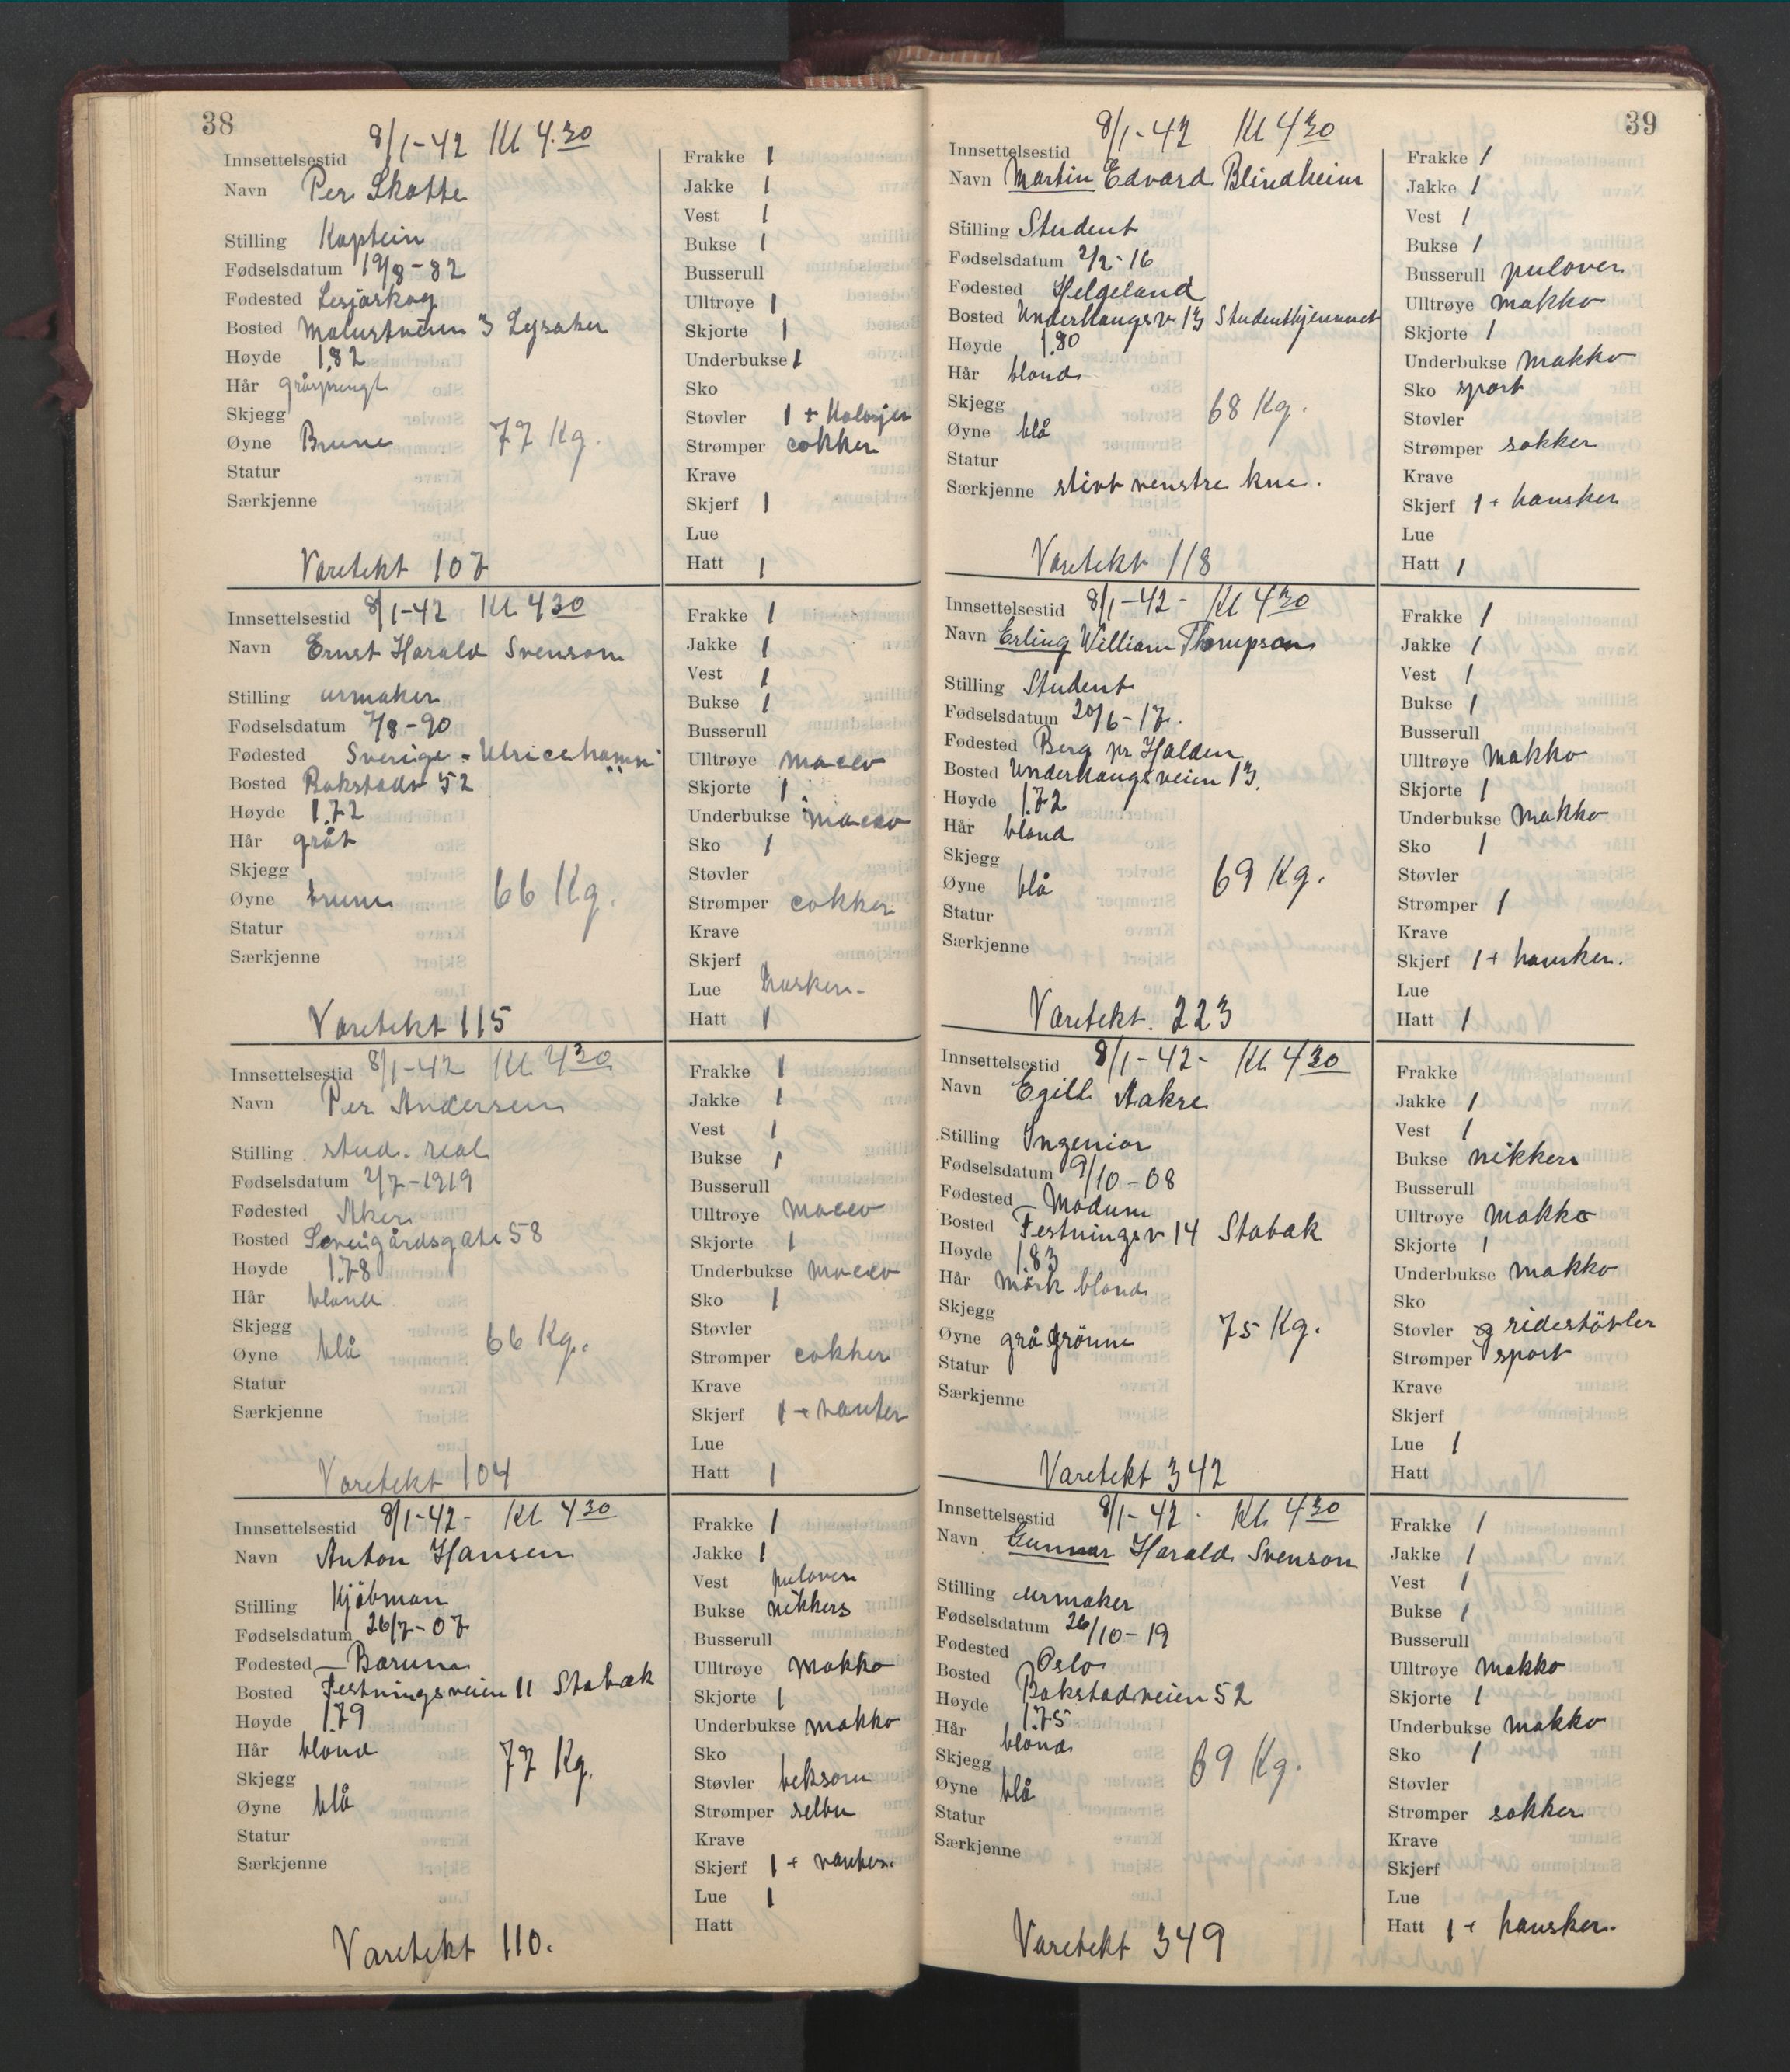 38
Innsettelsestid 8/1-42 Kl 4.30
Navn Per Skotte
Stilling Kaptein
Fødselsdatum 19/8-82
Fødested Lesjaskog
Bosted 3 Lysaker
Høyde 1,82
Hår gråsprengt
Skjegg
Øyne Brune 77 Kg.
Statur
Særkjenne
Varetekt 107
Frakke 1
Jakke 1
Vest 1
Bukse 1
Busserull
Ulltrøye 1
Skjorte 1
Underbukse 1
Sko
Støvler 1 + Kalosjer
Strømper cokker
Krave
Skjerf 1
Lue
Hatt 1
Innsettelsestid 8/1-42 Kl 4 30
Navn Ernst Harald Svenson
Stilling urmaker
Fødselsdatum 7/8-90
Fødested Sverige - Ulricehamn
Bosted Bokstadv 52
Høyde 1.72
Hår grått
Skjegg
Øyne brune 66 Kg.
Statur
Særkjenne
Varetekt 115
Frakke 1
Jakke 1
Vest 1
Bukse 1
Busserull
Ulltrøye macco
Skjorte 1
Underbukse macco
Sko 1
Støvler
Strømper cokker
Krave
Skjerf
Lue hasker.
Hatt 1
Innsettelsestid 8/1-42 Kl 4 30
Navn Per Andersen
Stilling stud. real
Fødselsdatum 2/7-1919
Fødested Aker
Bosted 58
Høyde 1.78
Hår blond
Skjegg
Øyne blå 66 Kg.
Statur
Særkjenne
Varetekt 104
Frakke 1
Jakke 1
Vest 1
Bukse 1
Busserull
Ulltrøye macco
Skjorte 1
Underbukse macco
Sko 1
Støvler
Strømper cokker
Krave
Skjerf 1 + vanter
Lue
Hatt 1
Innsettelsestid 8/1-42- Kl 4 30
Navn Anton Hansen
Stilling Kjöbman
Fødselsdatum 26/7-07
Fødested Bærum
Bosted Festningsveien 11 Stabæk
Høyde 1.79
Hår blond 77 Kg.
Skjegg
Øyne blå
Statur
Særkjenne
Varetekt 110.
Frakke 1
Jakke 1
Vest pulover
Bukse nikkers
Busserull
Ulltrøye makko
Skjorte 1
Underbukse makko
Sko
Støvler beksøm
Strømper selbu
Krave
Skjerf 1 + vanter.
Lue 1
Hatt
39
Innsettelsestid 8/1-42 Kl 4 30
Navn Martin Edvard Blindheim
Stilling Student
Fødselsdatum 2/2-16
Fødested Helgeland
Bosted Underhaugsv 13 Studenthjemmet
Høyde 1.80
Hår blond
Skjegg 68 Kg.
Øyne blå
Statur
Særkjenne stivt venstre kne.
Varetekt 118
Frakke 1
Jakke 1
Vest 1
Bukse 1
Busserull pulover
Ulltrøye makko
Skjorte 1
Underbukse makko
Sko sport
Støvler
Strømper sokker
Krave
Skjerf 1 + hansker
Lue
Hatt 1
Innsettelsestid 8/1-42- Kl 4 30
Navn Erling William Thompson
Stilling Student
Fødselsdatum 20/6-17.
Fødested Berg pr Halden
Bosted Underhaugsveien 13.
Høyde 1.72
Hår blond
Skjegg
Øyne blå 69 Kg.
Statur
Særkjenne
Varetekt. 223
Frakke 1
Jakke 1
Vest 1
Bukse 1
Busserull
Ulltrøye makko
Skjorte 1
Underbukse makko
Sko 1
Støvler
Strømper 1
Krave
Skjerf 1 + hansker.
Lue
Hatt 1
Innsettelsestid 8/1-42- Kl 4 30
Navn Egill Aakre
Stilling Ingeniør
Fødselsdatum 9/10-08
Fødested Modum
Bosted Festningsv 14 Stabæk
Høyde 1.83
Hår mörk blond
Skjegg
Øyne grå grönne 75 Kg.
Statur
Særkjenne
Varetekt 342
Frakke
Jakke 1
Vest 1
Bukse nikkers
Busserull
Ulltrøye makko
Skjorte 1
Underbukse makko
Sko
Støvler ridestövler
Strømper sport
Krave
Skjerf
Lue 1
Hatt
Innsettelsestid 8/1-42- Kl. 4 30
Navn Gunnar Harald Svenson
Stilling urmaker
Fødselsdatum 26/10-19
Fødested Oslo
Bosted Bokstadveien 52
Høyde 1.75
Hår blond
Skjegg 69 Kg.
Øyne blå
Statur
Særkjenne
Varetekt 349
Frakke 1
Jakke 1
Vest 1
Bukse 1
Busserull
Ulltrøye makko
Skjorte 1
Underbukse makko
Sko 1
Støvler
Strømper sokker
Krave
Skjerf
Lue
Hatt 1 + hansker.